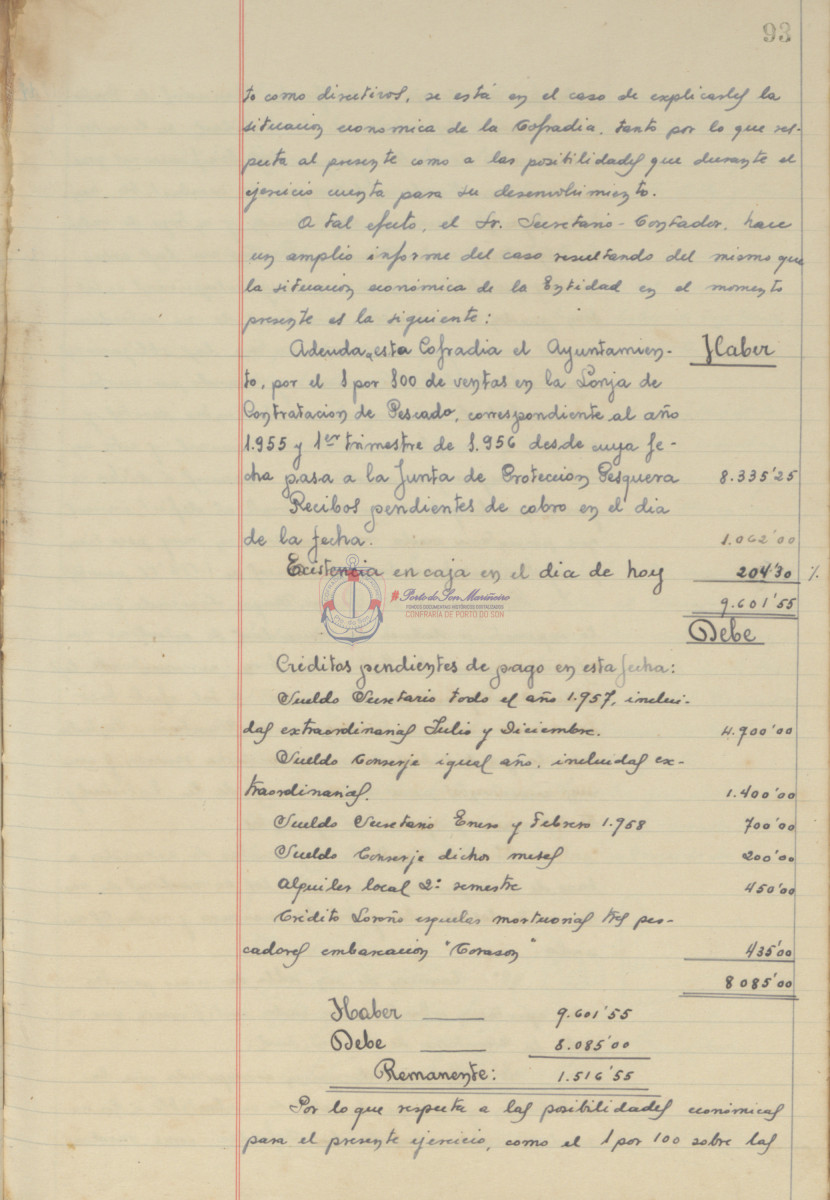 93
to como directivos, se está en el caso de explicarles la
situacion economica de la Cofradia, tanto por lo que res-
pecta al presente como a las posibilidades que durante el
ejercicio cuenta para su desenvolvimiento.
A tal efecto, el Sr. Secretario-Contador, hace
un amplio informe del caso resultando del mismo que
la situación económica de la Entidad en el momento
presente es la siguiente:
Adeuda a esta Cofradia el Ayuntamien- Haber
to, por el 1 por 100 de ventas en la Lonja de
Contratacion de Pescado, correspondiente al año
1.955 y 1er trimestre de 1.956 desde cuya fe-
cha pasa a la Junta de Proteccion Pesquera 8.335'25
Recibos pendientes de cobro en el dia
de la fecha. 1.062'00
Existencia en caja en el dia de hoy 204'30 %
Porto do Son Mariñeiro
FONDOS DOCUMENTAIS HISTÓRICOS DIXITALIZADOS
CONFRARÍA DE PORTO DO SON
9.601'55
Debe
Créditos pendientes de pago en esta fecha:
Sueldo Secretario todo el año 1.957, inclui-
das extraordinarias Julio y Diciembre. 4.900'00
Sueldo Conserje igual año, incluidas ex-
traordinarias. 1.400'00
Sueldo Secretario Enero y Febrero 1.958 700'00
Sueldo Conserje dichos meses 200'00
Alquiler local 2º semestre 450'00
Crédito Loroño esquelas mortuorias tres pes-
cadores embarcación "Corason" 435'00
8085'00
Haber 9.601'55
Debe 8.085'00
Remanente: 1.516'55
Por lo que respecta a las posibilidades económicas
para el presente ejercicio, como el 1 por 100 sobre las